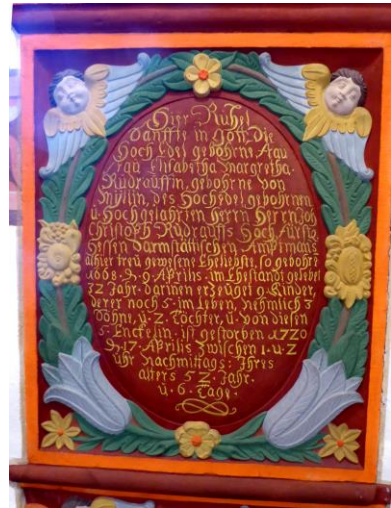 Hier Ruhet
sanffte in Gott Die
Hoch Edel gebohrne Frau
Frau Elisabetha Margretha
Rudrauffin, gebohrne von
des Hochedel gebohrnen
u. Hoch gelahrten Herrn Herrn Joh
Christoph Rudrauffs Hoch fürstl
Hessen Darmstättischen Amptmans
alhier treu gewesene Eheliebste, so gebohrẽ
1668. d. 9. Aprilis. im Ehestandt gelebet
32 Jahr. darinen erzeuget 9. Kinder
derer noch 5. im Leben, nehmlich 3
Söhne, u. 2. Töchter, u. von diesen
5. Enckelin. ist gestorben 1720
d. 17. Aprilis zwischen 1. u. 2
uhr nachmittags. Ihres
alters 52. Jahr.
u. 6. Tage.